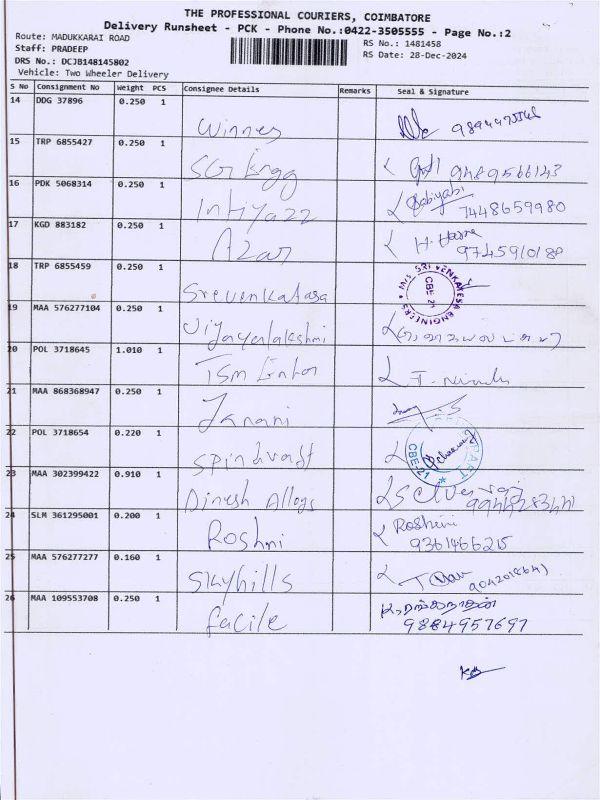 THE PROFESSIONAL COURIERS, COIMBATORE
Delivery Runsheet - PCK - Phone No.:0422-3505555 - Page No.:2
Route: MADUKKARAI ROAD
RS No.: 1481458
Staff: PRADEEP
RS Date: 28-Dec-2024
DRS No.: DCJB148145802
Vehicle: Two Wheeler Delivery
S No Consignment No Weight PCS Consignee Details Remarks Seal & Signature
14 DDG 37896 0.250 1
Winner
15 TRP 6855427 0.250 1
SGT Engg 9489566143
16 PDK 5068314 0.250 1
Intiyazz 7448659980
17 KGD 883182 0.250 1
Azar
18 TRP 6855459 0.250 1
Srevenkatasa M/S SRI VENKATESA ENGINEERS CBE-21
19 MAA 576277104 0.250 1
Vijayalakshmi
20 POL 3718645 1.010 1
Tsm
21 MAA 868368947 0.250 1
Janani
22 POL 3718654 0.220 1
CBE-21
23 MAA 302399422 0.910 1
Dinesh Alloys
24 SLM 361295001 0.200 1
Roshni Roshini
9361466215
25 MAA 576277277 0.160 1
Skyhills
26 MAA 109553708 0.250 1
facile 9884957697